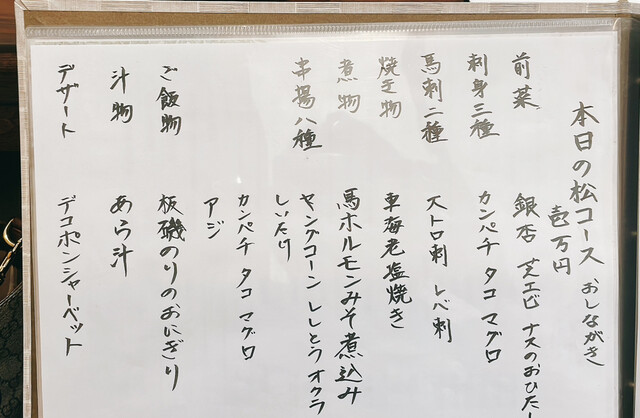 本日の松コース おしながき
壱万円
前菜 銀杏 芝エビ ナスのおひたし
刺身三種 カンパチ タコ マグロ
馬刺二種 大トロ刺 レバ刺
焼き物 車海老塩焼き
煮物 馬ホルモンみそ煮込み
串揚八種 ヤングコーン ししとう オクラ
しいたけ
カンパチ タコ マグロ
アジ
ご飯物 板磯のりのおにぎり
汁物 あら汁
デザート デコポンシャーベット